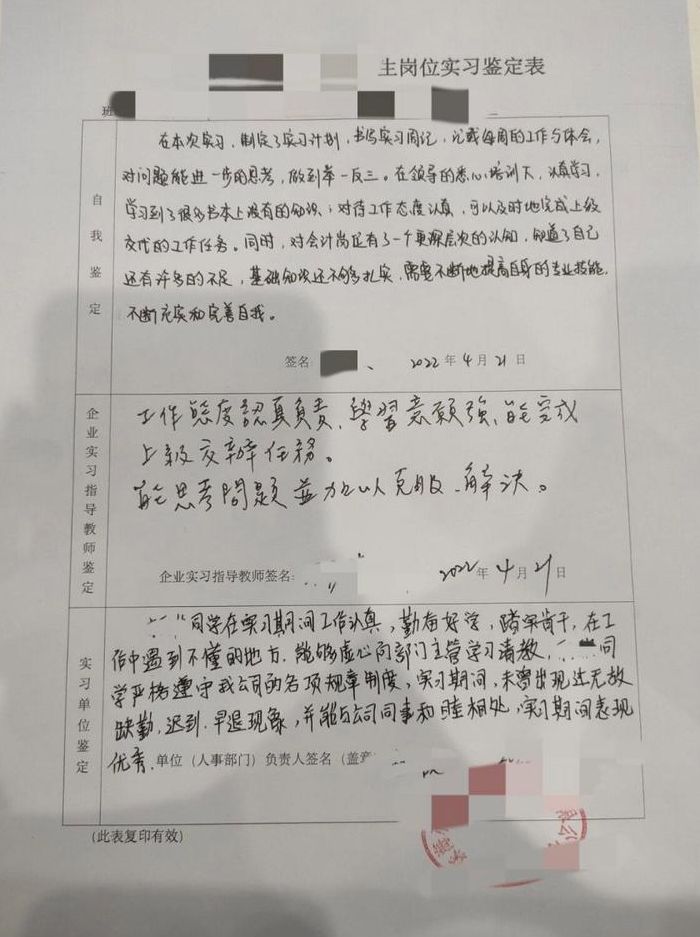 主岗位实习鉴定表
班
自我鉴定
在本次实习，制定了实习计划，书写实习周记，记载每周的工作与体会，
对问题能进一步的思考，做到举一反三。在领导的悉心培训下，认真学习，
学习到了很多书本上没有的知识；对待工作态度认真，可以及时地完成上级
交代的工作任务。同时，对会计岗还有了一个更深层次的认知，知道了自己
还有许多的不足，基础知识还不够扎实，需要不断地提高自身的专业技能，
不断充实和完善自我。
签名 、 2022年4月21日
企业实习指导教师鉴定
工作態度認真負責、學習意願強、能完成
上級交辦任務。
能思考問題並加以克服、解决。
企业实习指导教师签名: 2022年4月21日
实习单位鉴定
同学在实习期间工作认真，勤奋好学，踏实肯干，在工
作中遇到不懂的地方，能够虚心向部门主管学习请教， 同
学严格遵守我公司的各项规章制度，实习期间，未曾出现过无故
缺勤，迟到、早退现象，并能与公司同事和睦相处，实习期间表现
优秀. 单位（人事部门）负责人签名（盖章
限公
(此表复印有效)